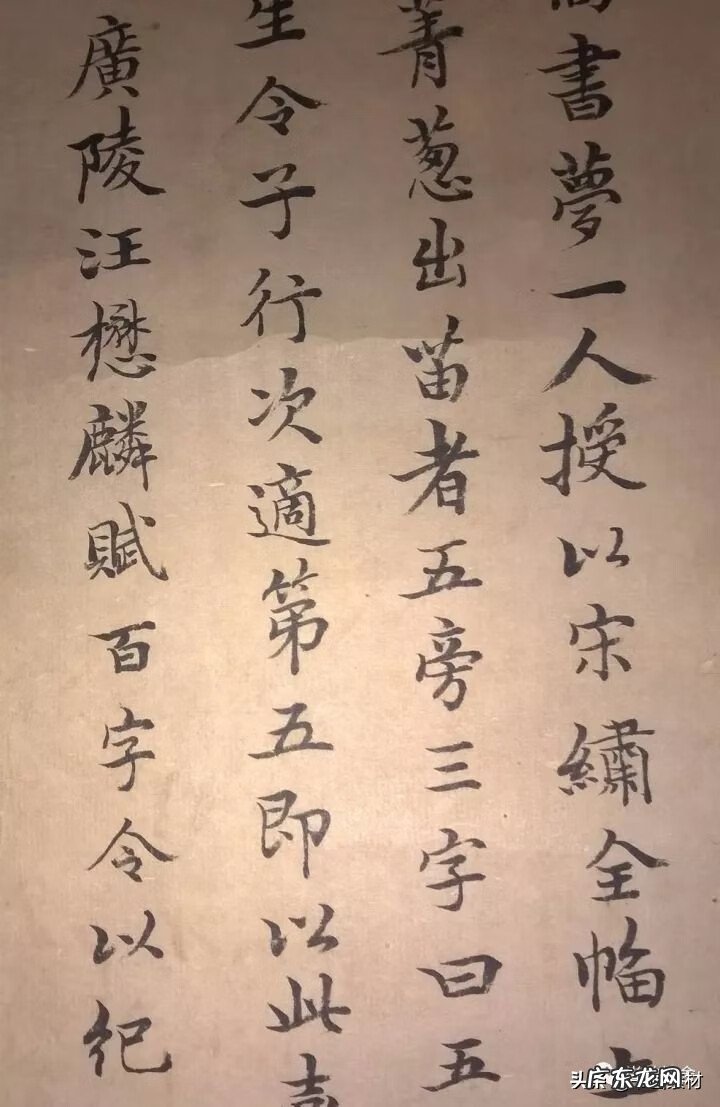 書夢一人授以宋繡全幅上
菁蔥出笛者五旁三字曰五
生令子行次適第五即以此
廣陵汪懋麟賦百字令以紀
头条
东龙网